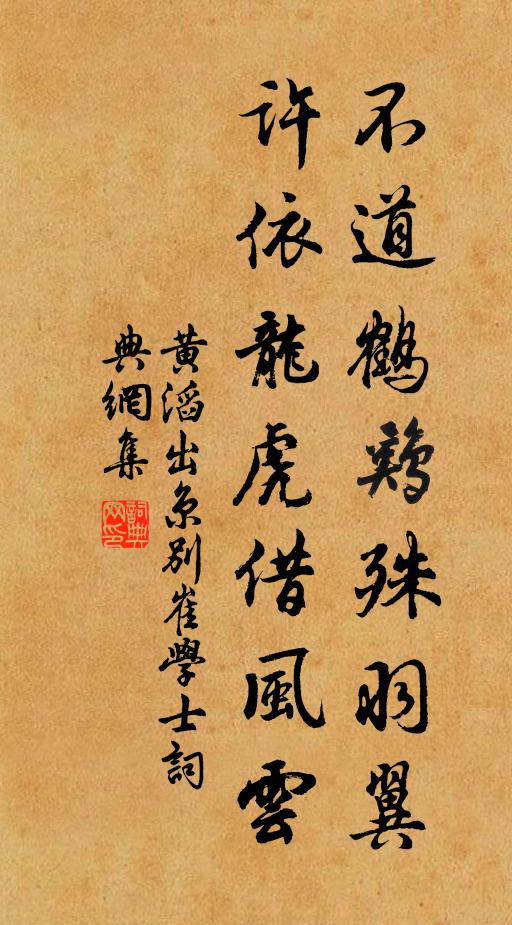 不道鶴鷄殊羽翼
許依龍虎借風雲
黄滔出京別崔學士詞
典網集
詞典网印